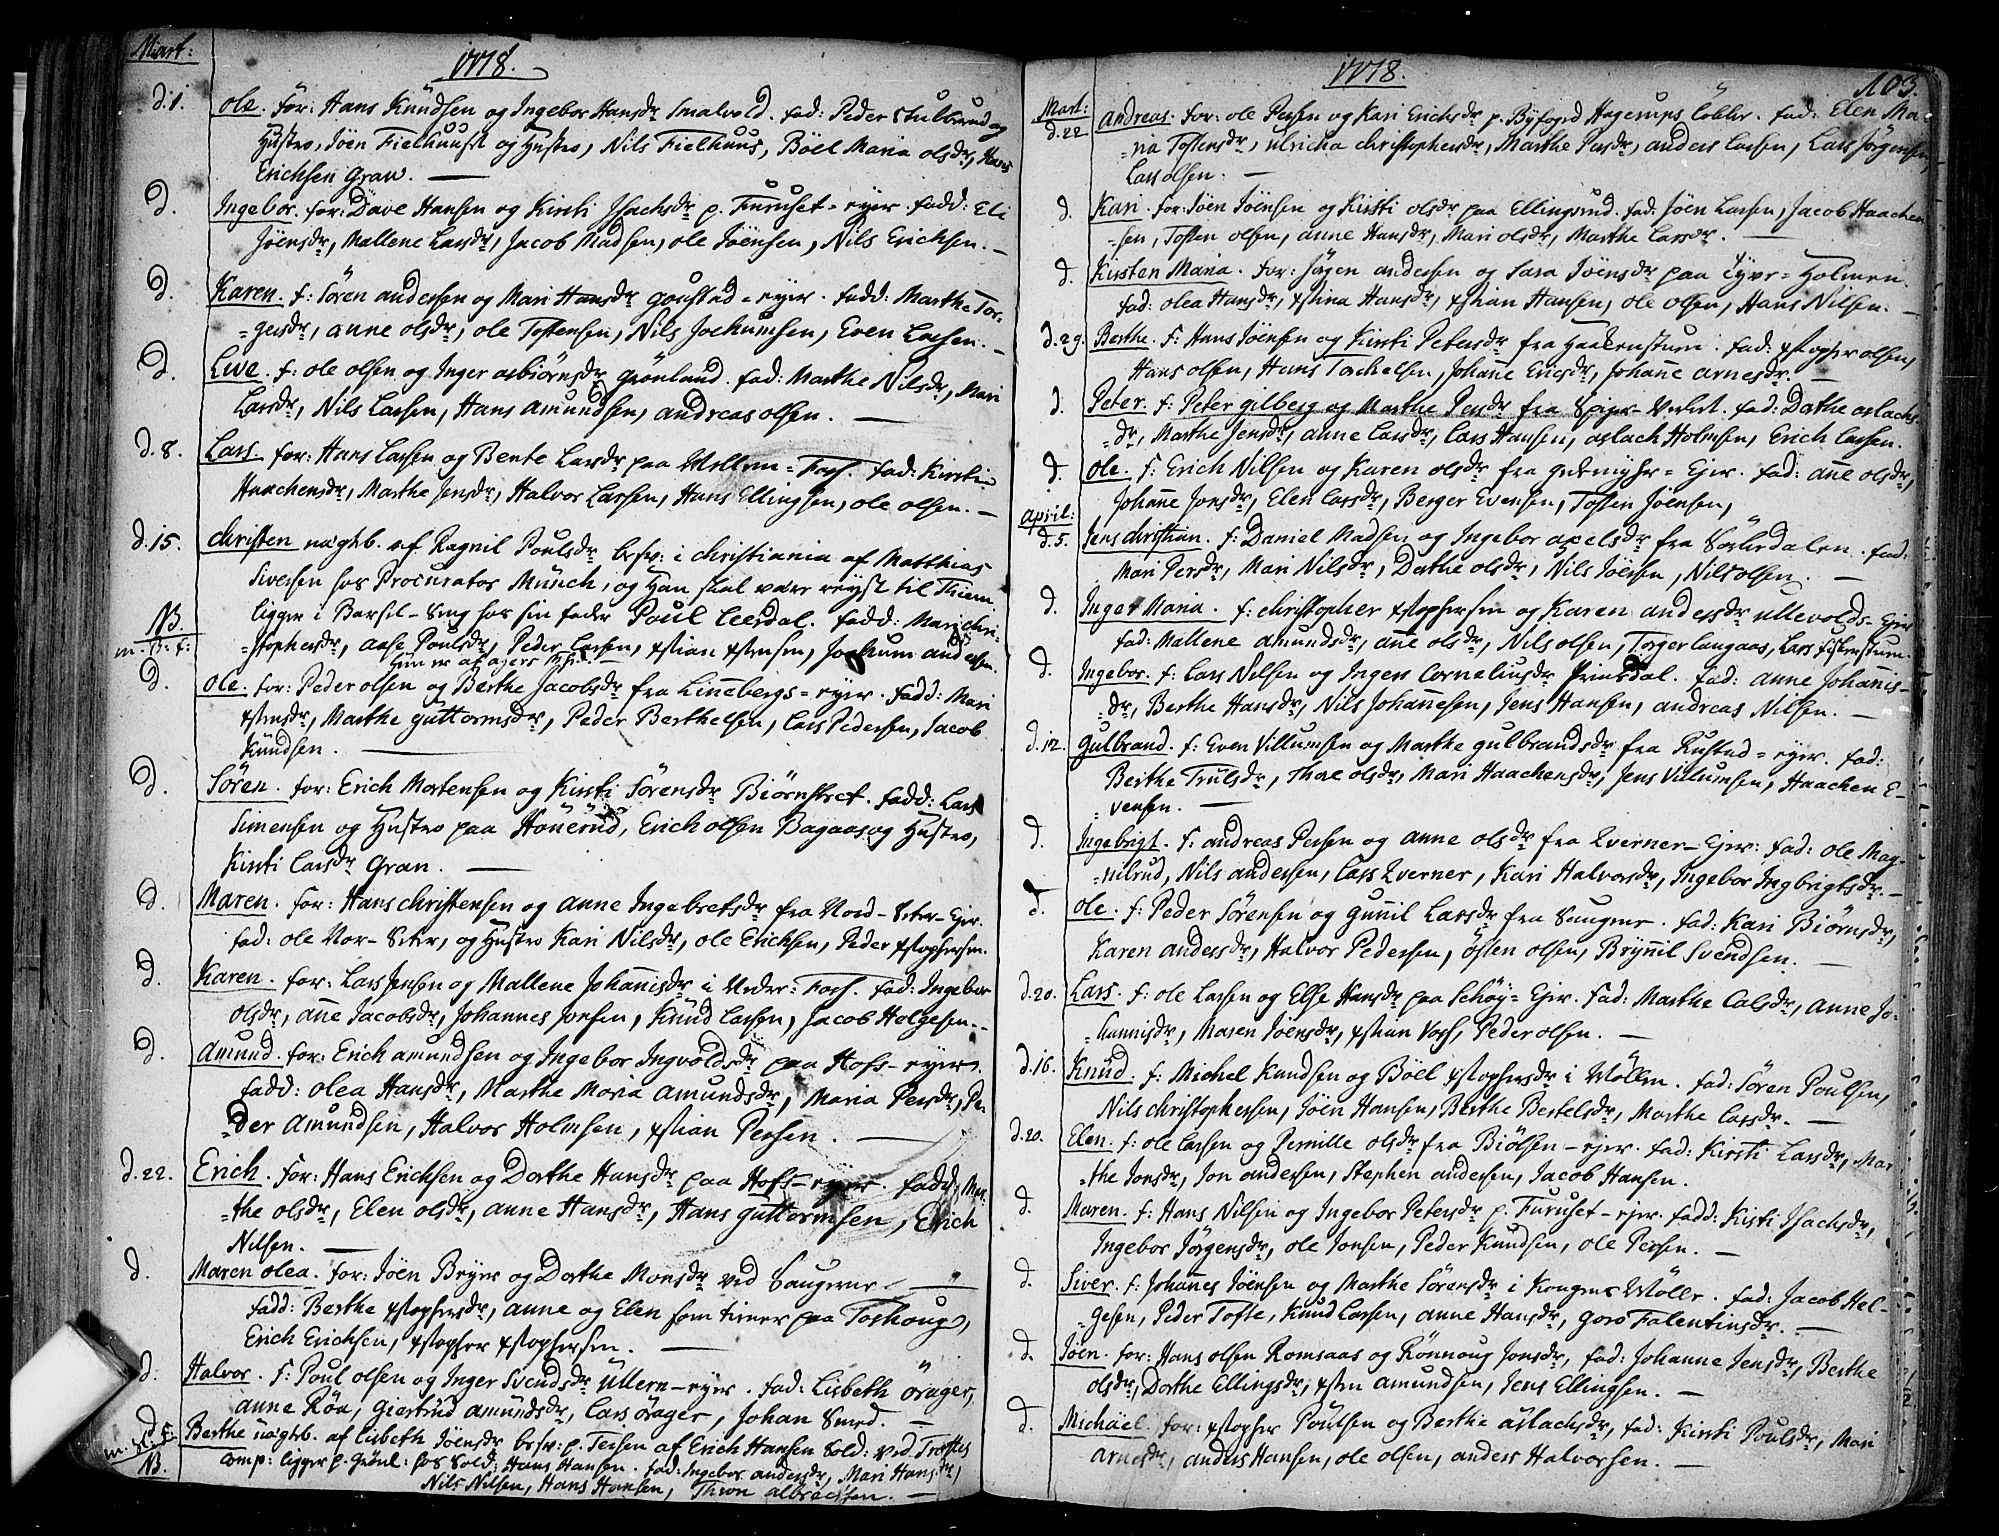 Mart:
1778.
d. 1. Ole. for: Hans Knüdsen og Ingebor Hansdr Smalvold. fad: Peder Stulsrud og
Hustro, Jöen Fielhuuset og Hustro, Nils Fielhuus, Böel Maria olsdr, Hans
Erichsen Grav.
d. Ingebor. for: Dave Hansen og Kirsti Isachsdr p. Furuset-eyer. fadd: Eli
Jöensdr, Mallene Larsdr, Jacob Madsen, ole Jöensen, Nils Erichsen.
d. Karen. f: Sören andersen og Mari Hansdr goustad-eyer. fadd: Marthe Tor-
=gersdr, anne olsdr, ole Tostensen, Nils Jochumsen, Even Larsen.
d. Live. f: ole olsen og Inger asbiörnsdr grönland. fad: Marthe Nilsdr, Mari
Larsdr, Nils Larsen, Hans amundsen, andreas olsen.
d. 8. Lars. for: Hans Larsen og Bente Larsdr paa Mellem=Foss. fad: Kirsti
Haachensdr, Marthe Jensdr, Halvor Larsen, Hans Ellingsen, ole olsen.
d. 15. christen uægtb. af Ragnil Poulsdr besv: i christiania af Matthias
Siversen hos Procurator Münch, og Han skal være reyst til Triem
ligger i Barsel-Seng hos sin fader Poul Leerdal. fadd: Mari chri-
NB.
=stophersdr, aase Poulsdr, Peder Larsen, xstian xstensen, Jochum andersen.
d. Ole. for: Peder olsen og Berthe Jacobsdr fra Linnebergs=eyer. fadd: Mari
xstensdr, Marthe guttormsdr, Peder Berthelsen, Lars Pedersen, Jacob
Knüdsen.
d. Sören. for: Erich Mortensen og Kirsti Sörensdr Biörnstret. fadd: Lars
Simensen og Hustro paa Hönerud, Erich olsen Bagaas og Hustro,
Kirsti Larsdr Gran.
d. Maren. for: Hans christensen og anne Ingebretsdr fra Nord-Seter-Ejer.
fad: ole Nor-Seter, og Hustro Kari Nilsdr, ole Erichsen, Peder xstophersen.
d. Karen. for: Lars Jensen og Mallene Johannisdr i Neder=Foss. fad: Ingebor
olsdr, anne Jacobsdr, Johannes Jonsen, Knüd Larsen, Jacob Helgesen.
d. Amund. for: Erich amundsen og Ingebor Ingvoldsdr paa Hofs-eyer.
fadd: olea Hansdr, Marthe Maria Amundsdr, Maria Persdr, Pe-
=der Amundsen, Halvor Holmsen, xstian Persen.
d. 22. Erich. for: Hans Erichsen og Dorthe Hansdr paa Hofs-eyer. fadd: Mar-
=the olsdr, Elen olsdr, anne Hansdr, Hans guttormsen, Erich
Nilsen.
d. Maren olea. for: Jöen Bryer og Dorthe Monsdr ved Saugene
fadd: Berthe xstophersdr, anne og Elen som tiener paa Toshoug,
Erich Erichsen, xstopher xstophersen.
d. Halvor. f: Poul olsen og Inger Svendsdr Üllern-eyer. fad: Lisbeth örager,
anne Röa, giertrud amundsdr, Lars örager, Johan Smed.
d. Berthe uægtb. af Lisbeth Jöensdr besv: p. Teisen af Erich Hansen Sold: ved
NB. comp: ligger p. Grönl: hos Sold: Hans Hansen. fad: Ingebor andersdr, Mari Hansdr,
Nils Nilsen, Hans Hansen, Thron albrectsen.
1778.
103.
Mart:
d. 22 Andreas. for: ole Persen og Kari Erichsdr p. Byfoged Hagerups lökke. fad: Elen Ma-
=na Tostensdr, ulricha christophersdr, Marthe Persdr, anders Larsen, Lars Jörgensen,
Lars olsen.
d. Kari. for: Jöen Jöensen og Kirsti olsdr paa Ellingsrud. fad: Jöen Larsen, Jacob Haachen
=sen, Tosten olsen, anne Hansdr, Mari olsdr, Marthe Larsdr.
d. Kirsten Maria. for: Jögen andersen og Sara Jöensdr paa Tyve=Holmen.
fad: olea Hansdr, xstina Hansdr, xstian Hansen, ole olsen, Hans Nilsen.
d. 29. Berthe. f: Hans Jöensen og Kirsti Petersdr fra Haakenstuen. fad: xstopher olsen,
Hans olsen, Hans Torchelsen, Johanne Ericsdr, Johanne arnesdr.
d. Peter. f: Peter gilberg og Marthe Persdr fra Spiger-Verket. fad: Dorthe aslachs-
=dr, Marthe Jensdr, anne Larsdr, Lars Hansen, aslach Holmsen, Erich Larsen.
d. Ole. f: Erich Nilsen og Karen olsdr fra -Ejer. fad: anne olsdr,
Johanne Jonsdr, Elen Larsdr, Berger Evensen, Tosten Jöensen,
April:
d. 5. Jens christian. f: Daniel Madsen og Ingebor axelsdr fra Sörkedalen. fad:
Mari Persdr, Mari Nilsdr, Dorthe olsdr, Nils Jöensen, Nils olsen.
d. Inger Maria. f: christopher xstophersen og Karen andersdr ullevolds-Ejer
fad: Mallene amundsdr, anne olsdr, Nils olsen, Torger Langaas, Lars
d. Ingebor. f: Lars Nilsen og Inger Corneliusdr Prinsdal. fad: anne Johannis-
=dr, Berthe Hansdr, Nils Johannesen, Jens Hansen, andreas Nilsen.
d. 12. Gulbrand. f: Even Villumsen og Marthe gulbrandsdr fra Rustad=eyer. fad:
Berthe Trulsdr, Thore olsdr, Mari Haachensdr, Jens Villumsen, Haachen E-
=vensen.
d. Ingebrigt. f: andreas Persen og anne olsdr fra Kverner-Ejer: fad: ole Mag-
=nilrud, Nils andersen, Lars Kverner, Kari Halvorsdr, Ingebor Ingbrigtsdr.
d. Ole. f: Peder Sörensen og gunnil Larsdr fra Saugene. fad: Kari Biörnsdr,
Karen andersdr, Halvor Pedersen, östen olsen, Brynnil Svendsen.
d. 20. Lars. f: ole Larsen og Else Hansdr paa Schöy=Ejer. fad: Marthe Calsdr, anne Jo-
=hannisdr, Maren Jöensdr, xstian Voss, Peder olsen.
d. 16. Knüd. f: Michel Knudsen og Böel xstophersdr i Möllen. fad: Sören Poulsen,
Nils christophersen, Jöen Hansen, Berthe Bertelsdr, Marthe Larsdr.
d. 20. Elen. f: ole Larsen og Pernille olsdr fra Biölsen-ejer. fad: Kirsti Larsdr, Mar-
=the Jonsdr, Jon andersen, Stephen andersen, Jacob Hansen.
d. Maren. f: Hans Nilsen og Ingebor Petersdr p. Furuset-ejer. fadd: Kisti Isachsdr,
Ingebor Jörgensdr, ole Jonsen, Peder Knudsen, ole Persen.
d. Siver. f: Johannes Jöensen og Marthe Sörensdr i Kongens Mölle. fad: Jacob Hel-
=gesen, Peder Tofte, Knud Larsen, anne Hansdr, goro Falentinsdr.
d. Jöen. for: Hans olsen Romsaas og Rönnoug Jonsdr, fad: Johanne Jensdr, Berthe
olsdr, Dorthe Ellingsdr, xsten amundsen, Jens Ellingsen.
d. Michael. for: xstopher Poulsen og Berthe aslachsdr, fad: Kirsti Poulsdr, Mari
arnesdr, anders Hansen, ole olsen, anders Halvorsen.